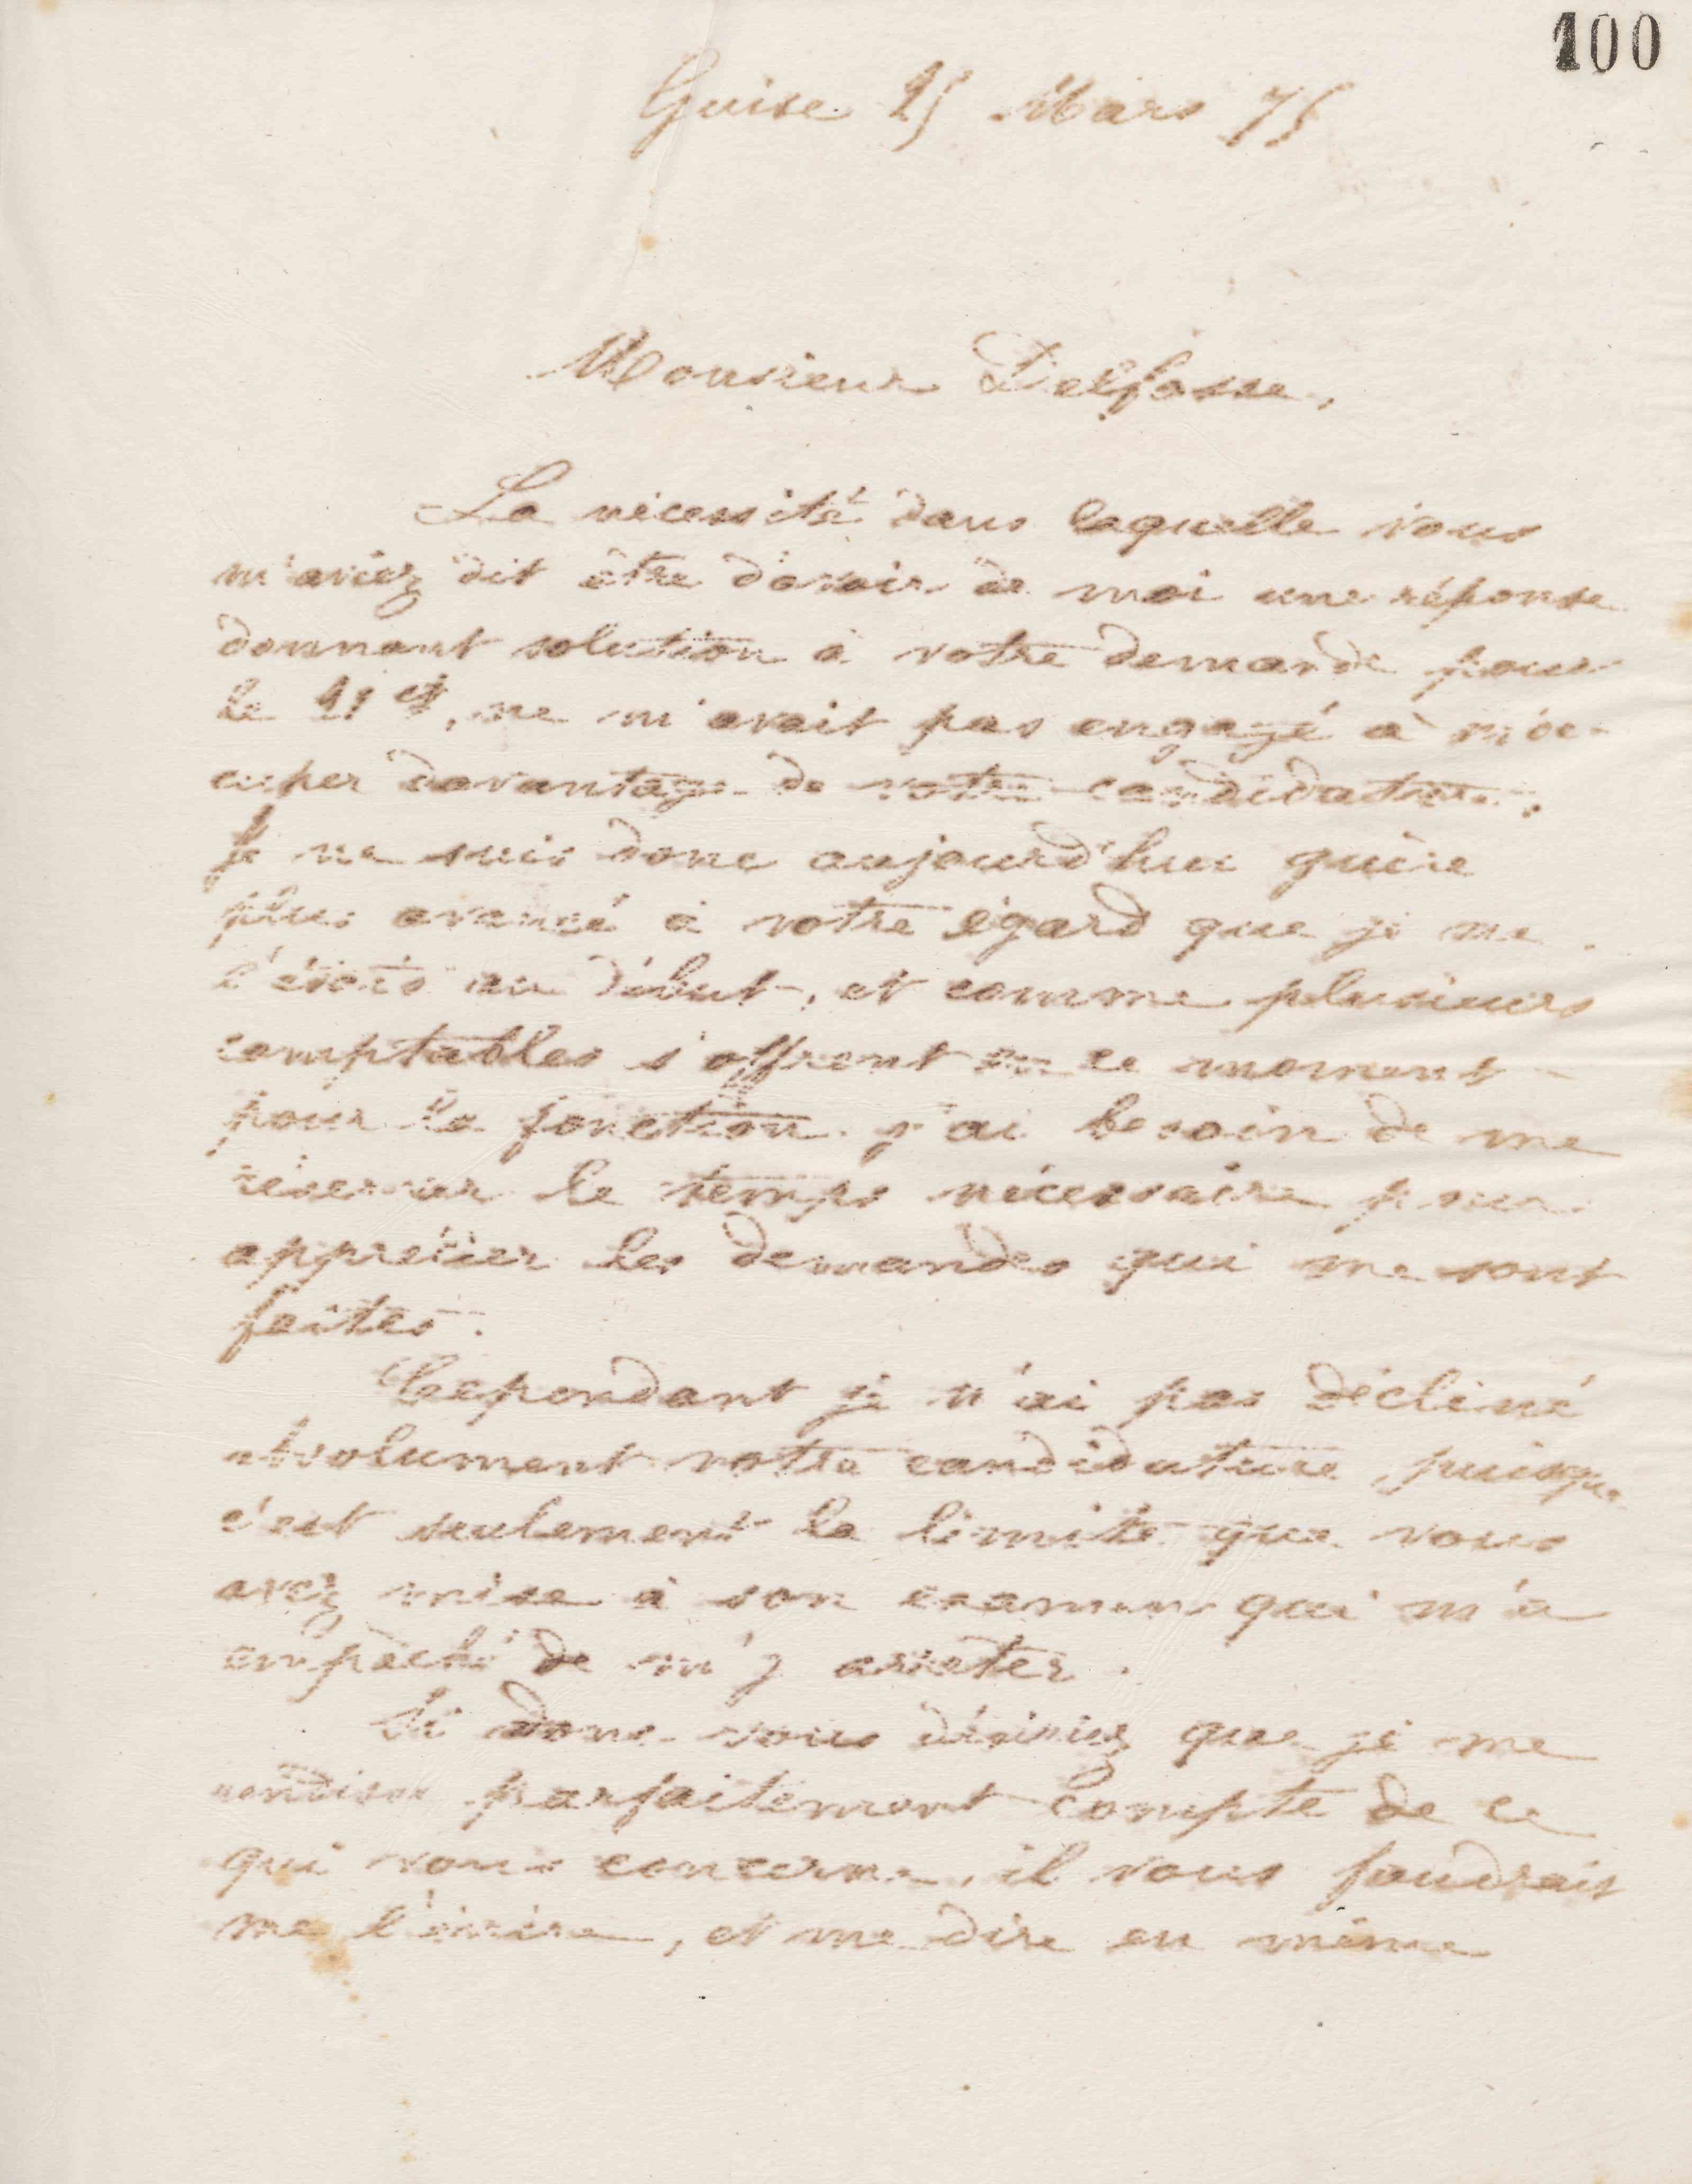 100
Guise 25 Mars 75
Monsieur Delfosse,
La nécessité dans laquelle vous
m'aviez dit être d'avoir de moi une réponse
donnant solution à votre demande pour
le 21 ct, ne m'avait pas engagé à m'oc-
cuper davantage de votre candidature.
Je ne suis donc aujourd'hui guère
plus avancé à votre égard que je ne
l'étais au début, et comme plusieurs
comptables s'offrent en ce moment
pour la fonction j'ai besoin de me
réserver le temps nécessaire pour
apprécier les demandes qui me sont
faites.
Cependant je n'ai pas décliné
absolument votre candidature puisque
c'est seulement la limite que vous
avez mise à son examen qui m'a
empêché de m'y arrêter.
Si donc vous désiriez que je me
rendisse parfaitement compte de ce
qui vous concerne, il vous faudrait
me l'écrire, et me dire en même